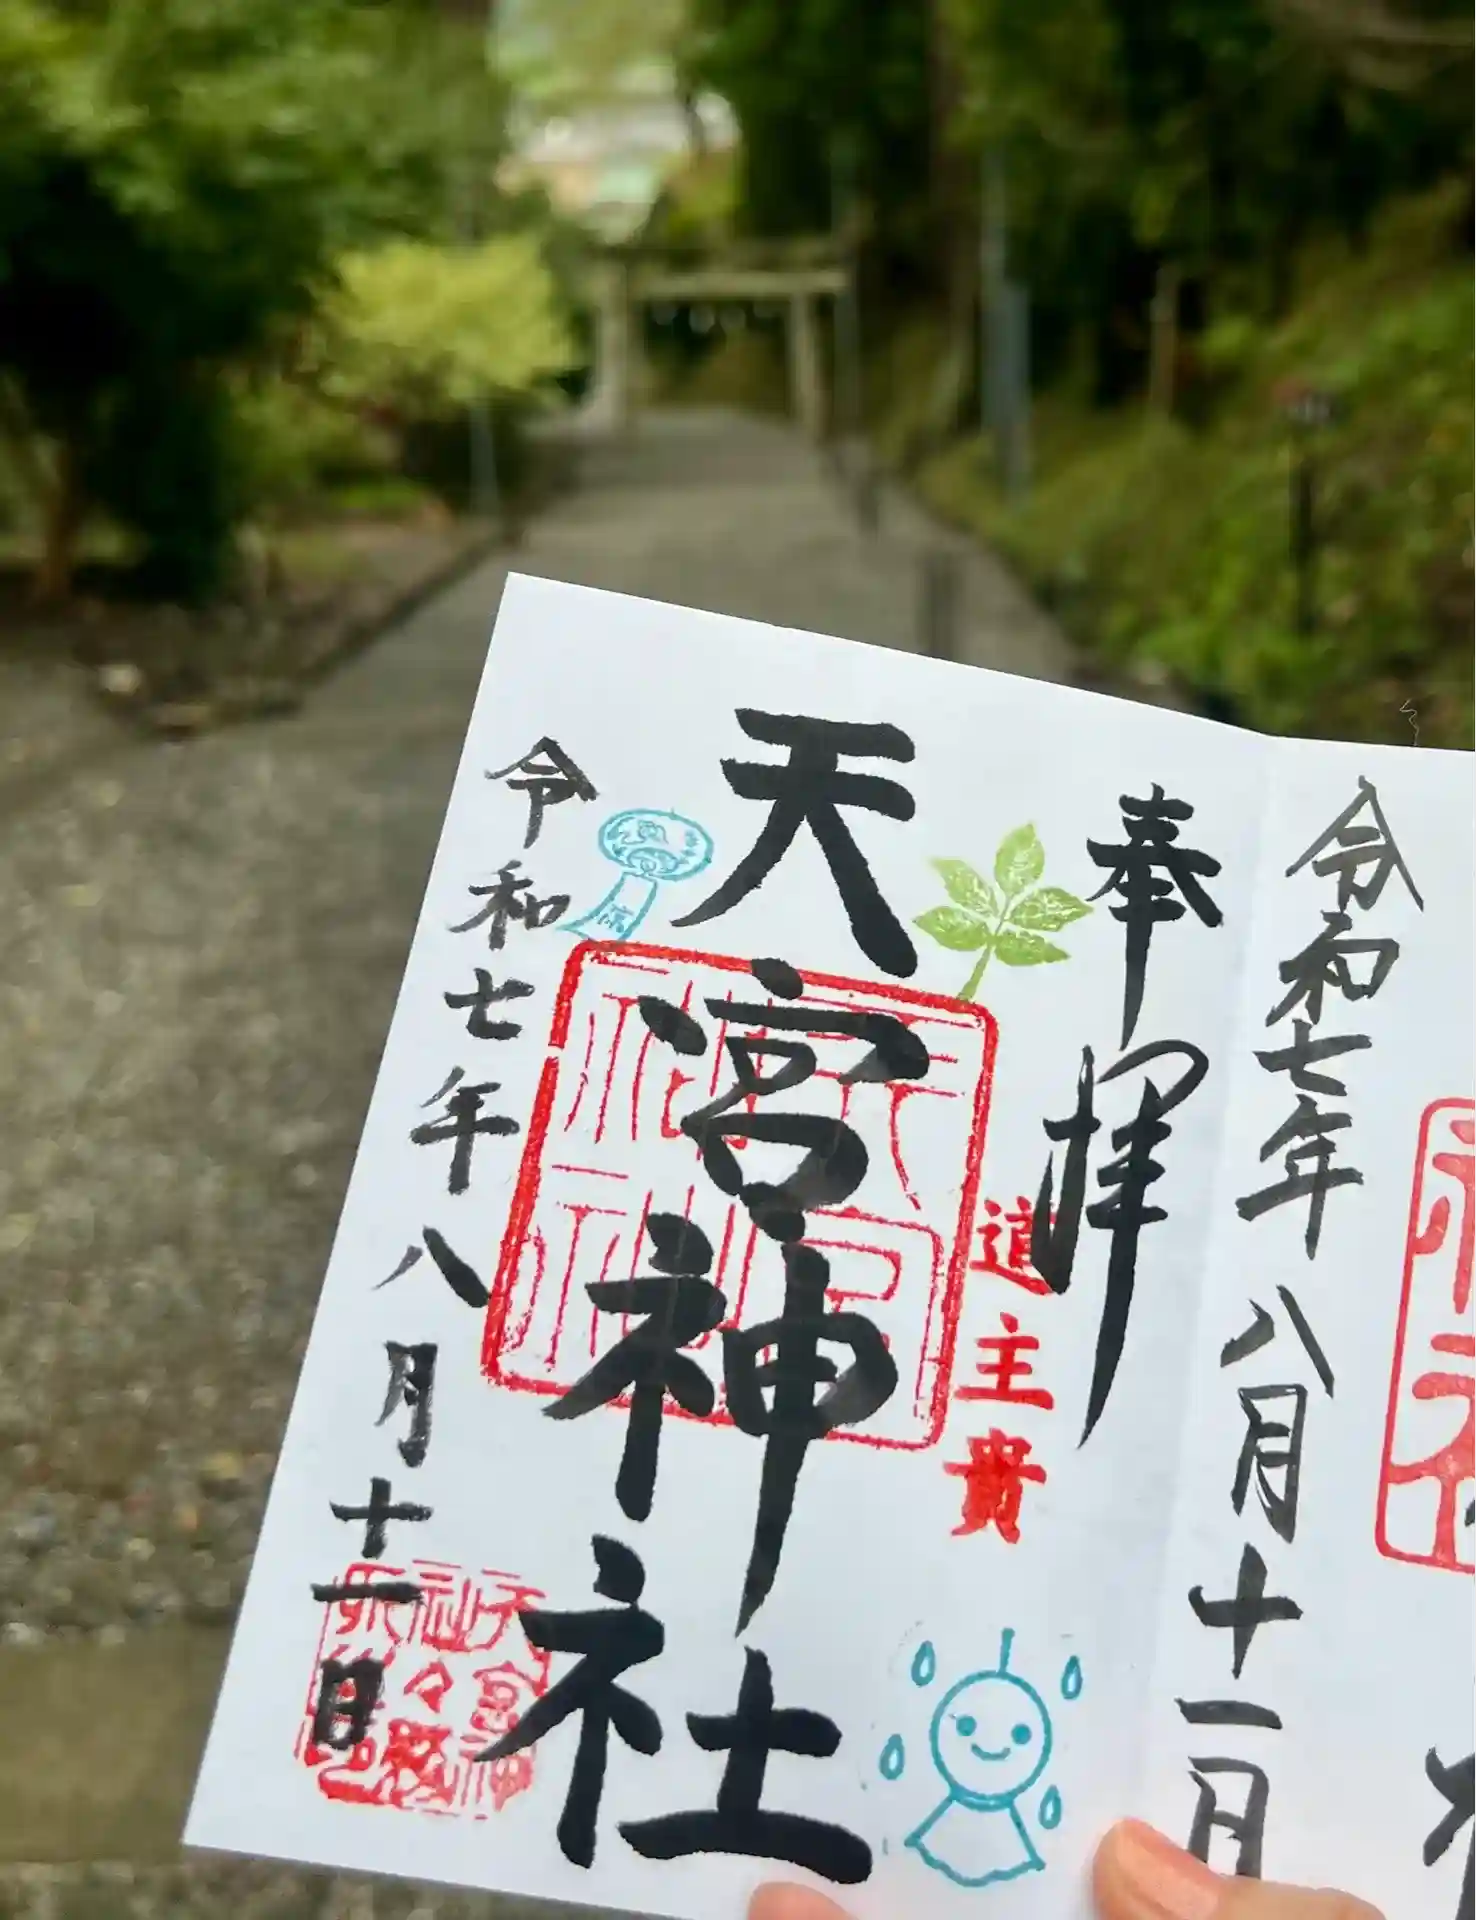 令和七年八月十一日
奉拝
道主貴
天宮神社
令和七年八月十一日